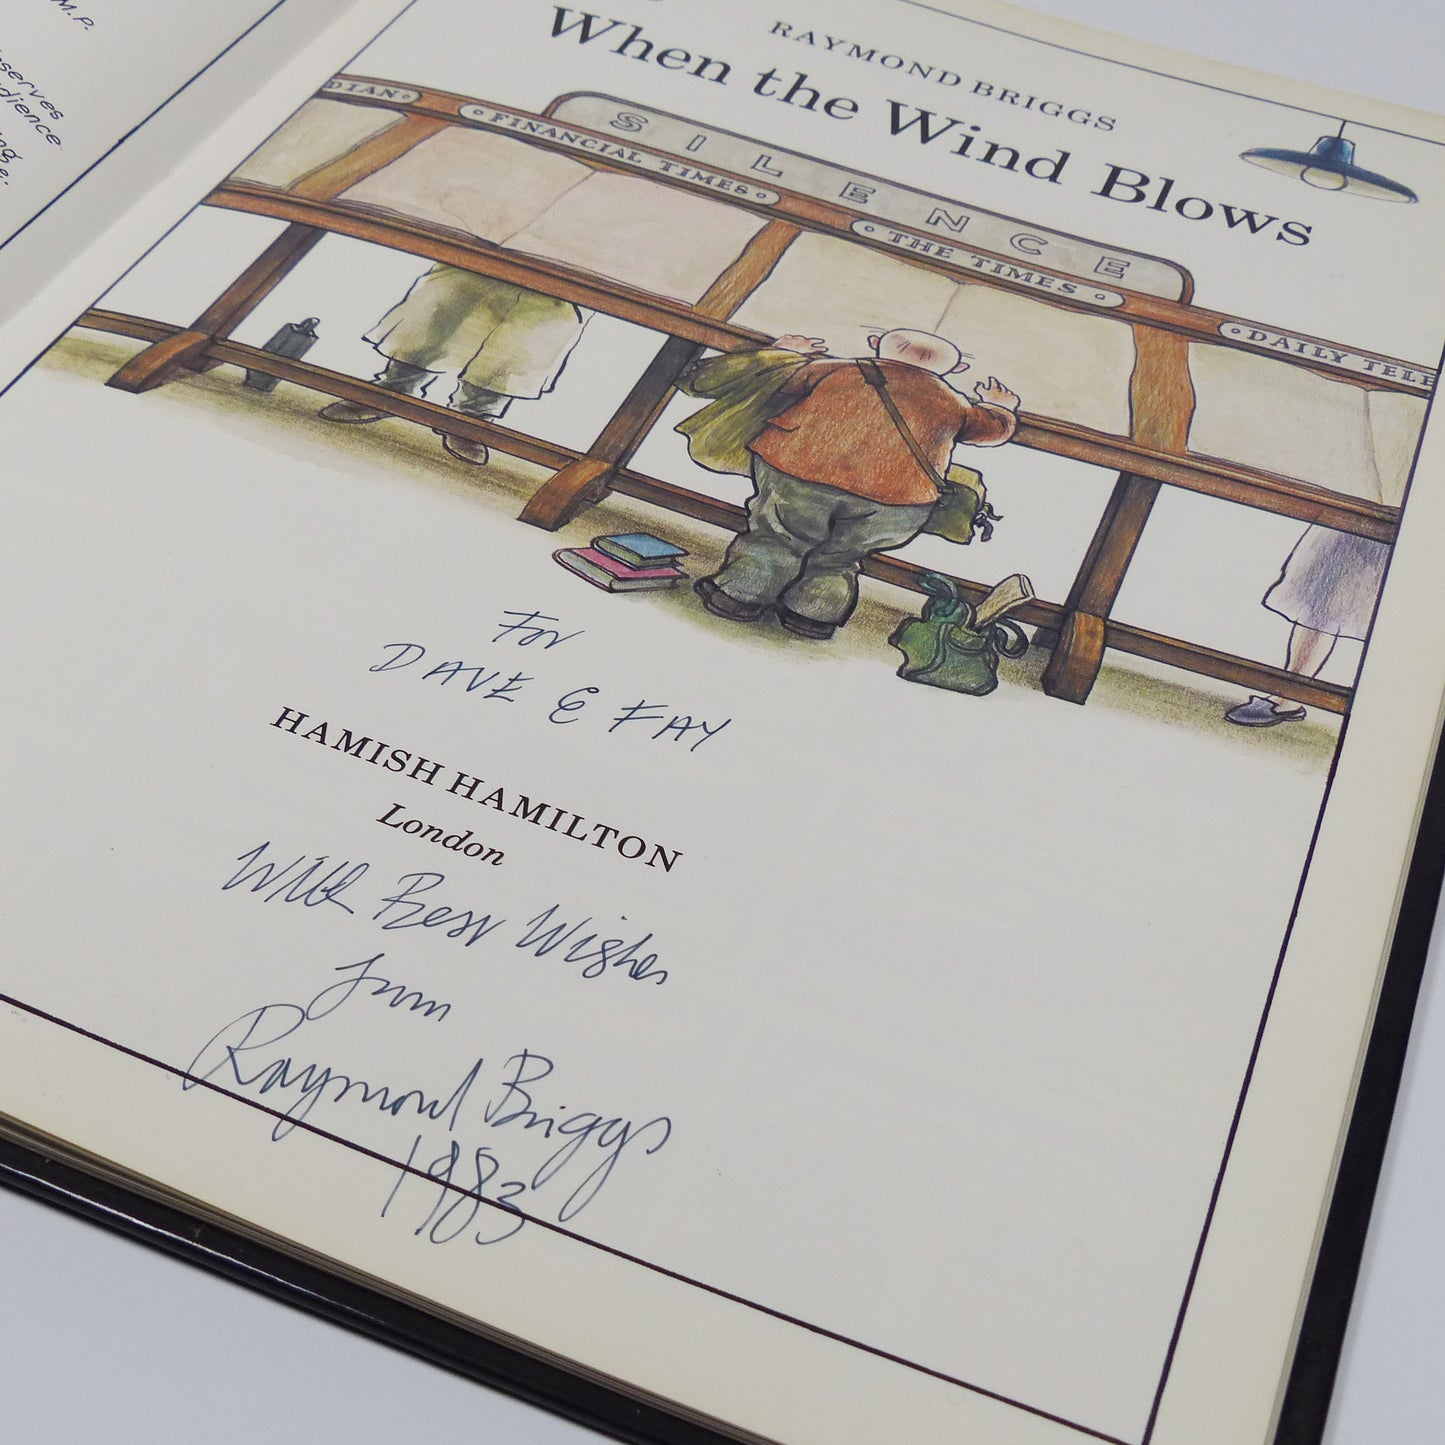 M.P.
RAYMOND BRIGGS
When the Wind Blows
SILENCE
DIAN
FINANCIAL TIMES
THE TIMES
DAILY TELE
For
DAVE & FAY
HAMISH HAMILTON
London
With Best Wishes
from
Raymond Briggs
1983